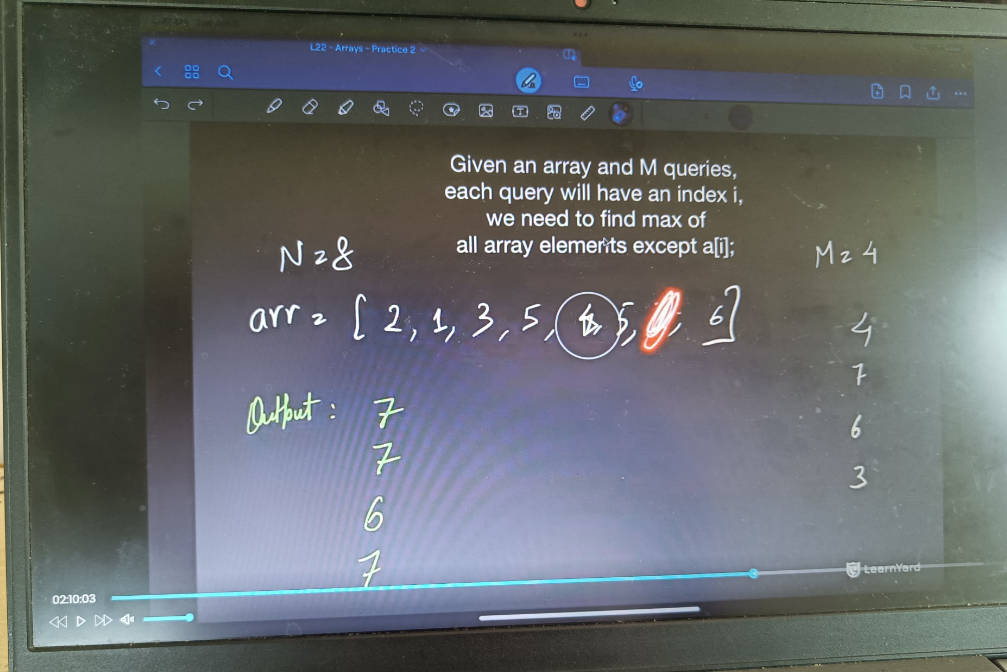 L22 - Arrays - Practice 2
Given an array and M queries,
each query will have an index i,
we need to find max of
all array elements except a[i];
N = 8
M = 4
arr = [ 2, 1, 3, 5, 5, 6 ]
4
7
6
3
Output :
7
7
6
7
LearnYard
02:10:03